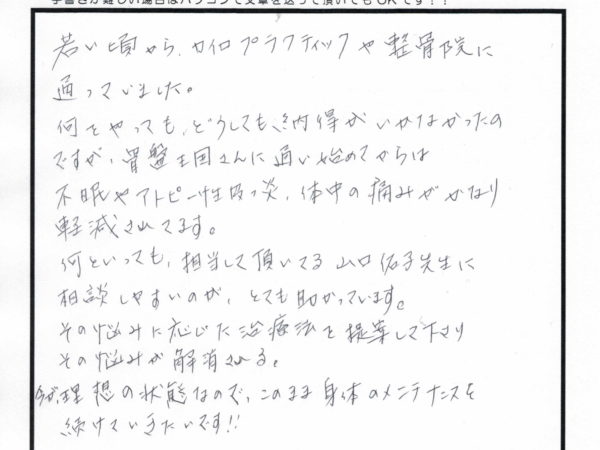 手書きが難しい場合はパソコンで文章を送って頂いてもOKです！！
若い頃から、カイロプラクティックや整骨院に
通っていました。
何をやっても、どうしても、納得がいかなかったの
ですが、骨盤王国さんに通い始めてからは
不眠やアトピー性皮フ炎、体中の痛みがかなり
軽減されてます。
何といっても、担当して頂いてる山口佑子先生に
相談しやすいのが、とても助かっています。
その悩みに応じた治療法を提案して下さり
その悩みが解消される。
今が、理想の状態なので、このまま身体のメンテナンスを
続けていきたいです!!